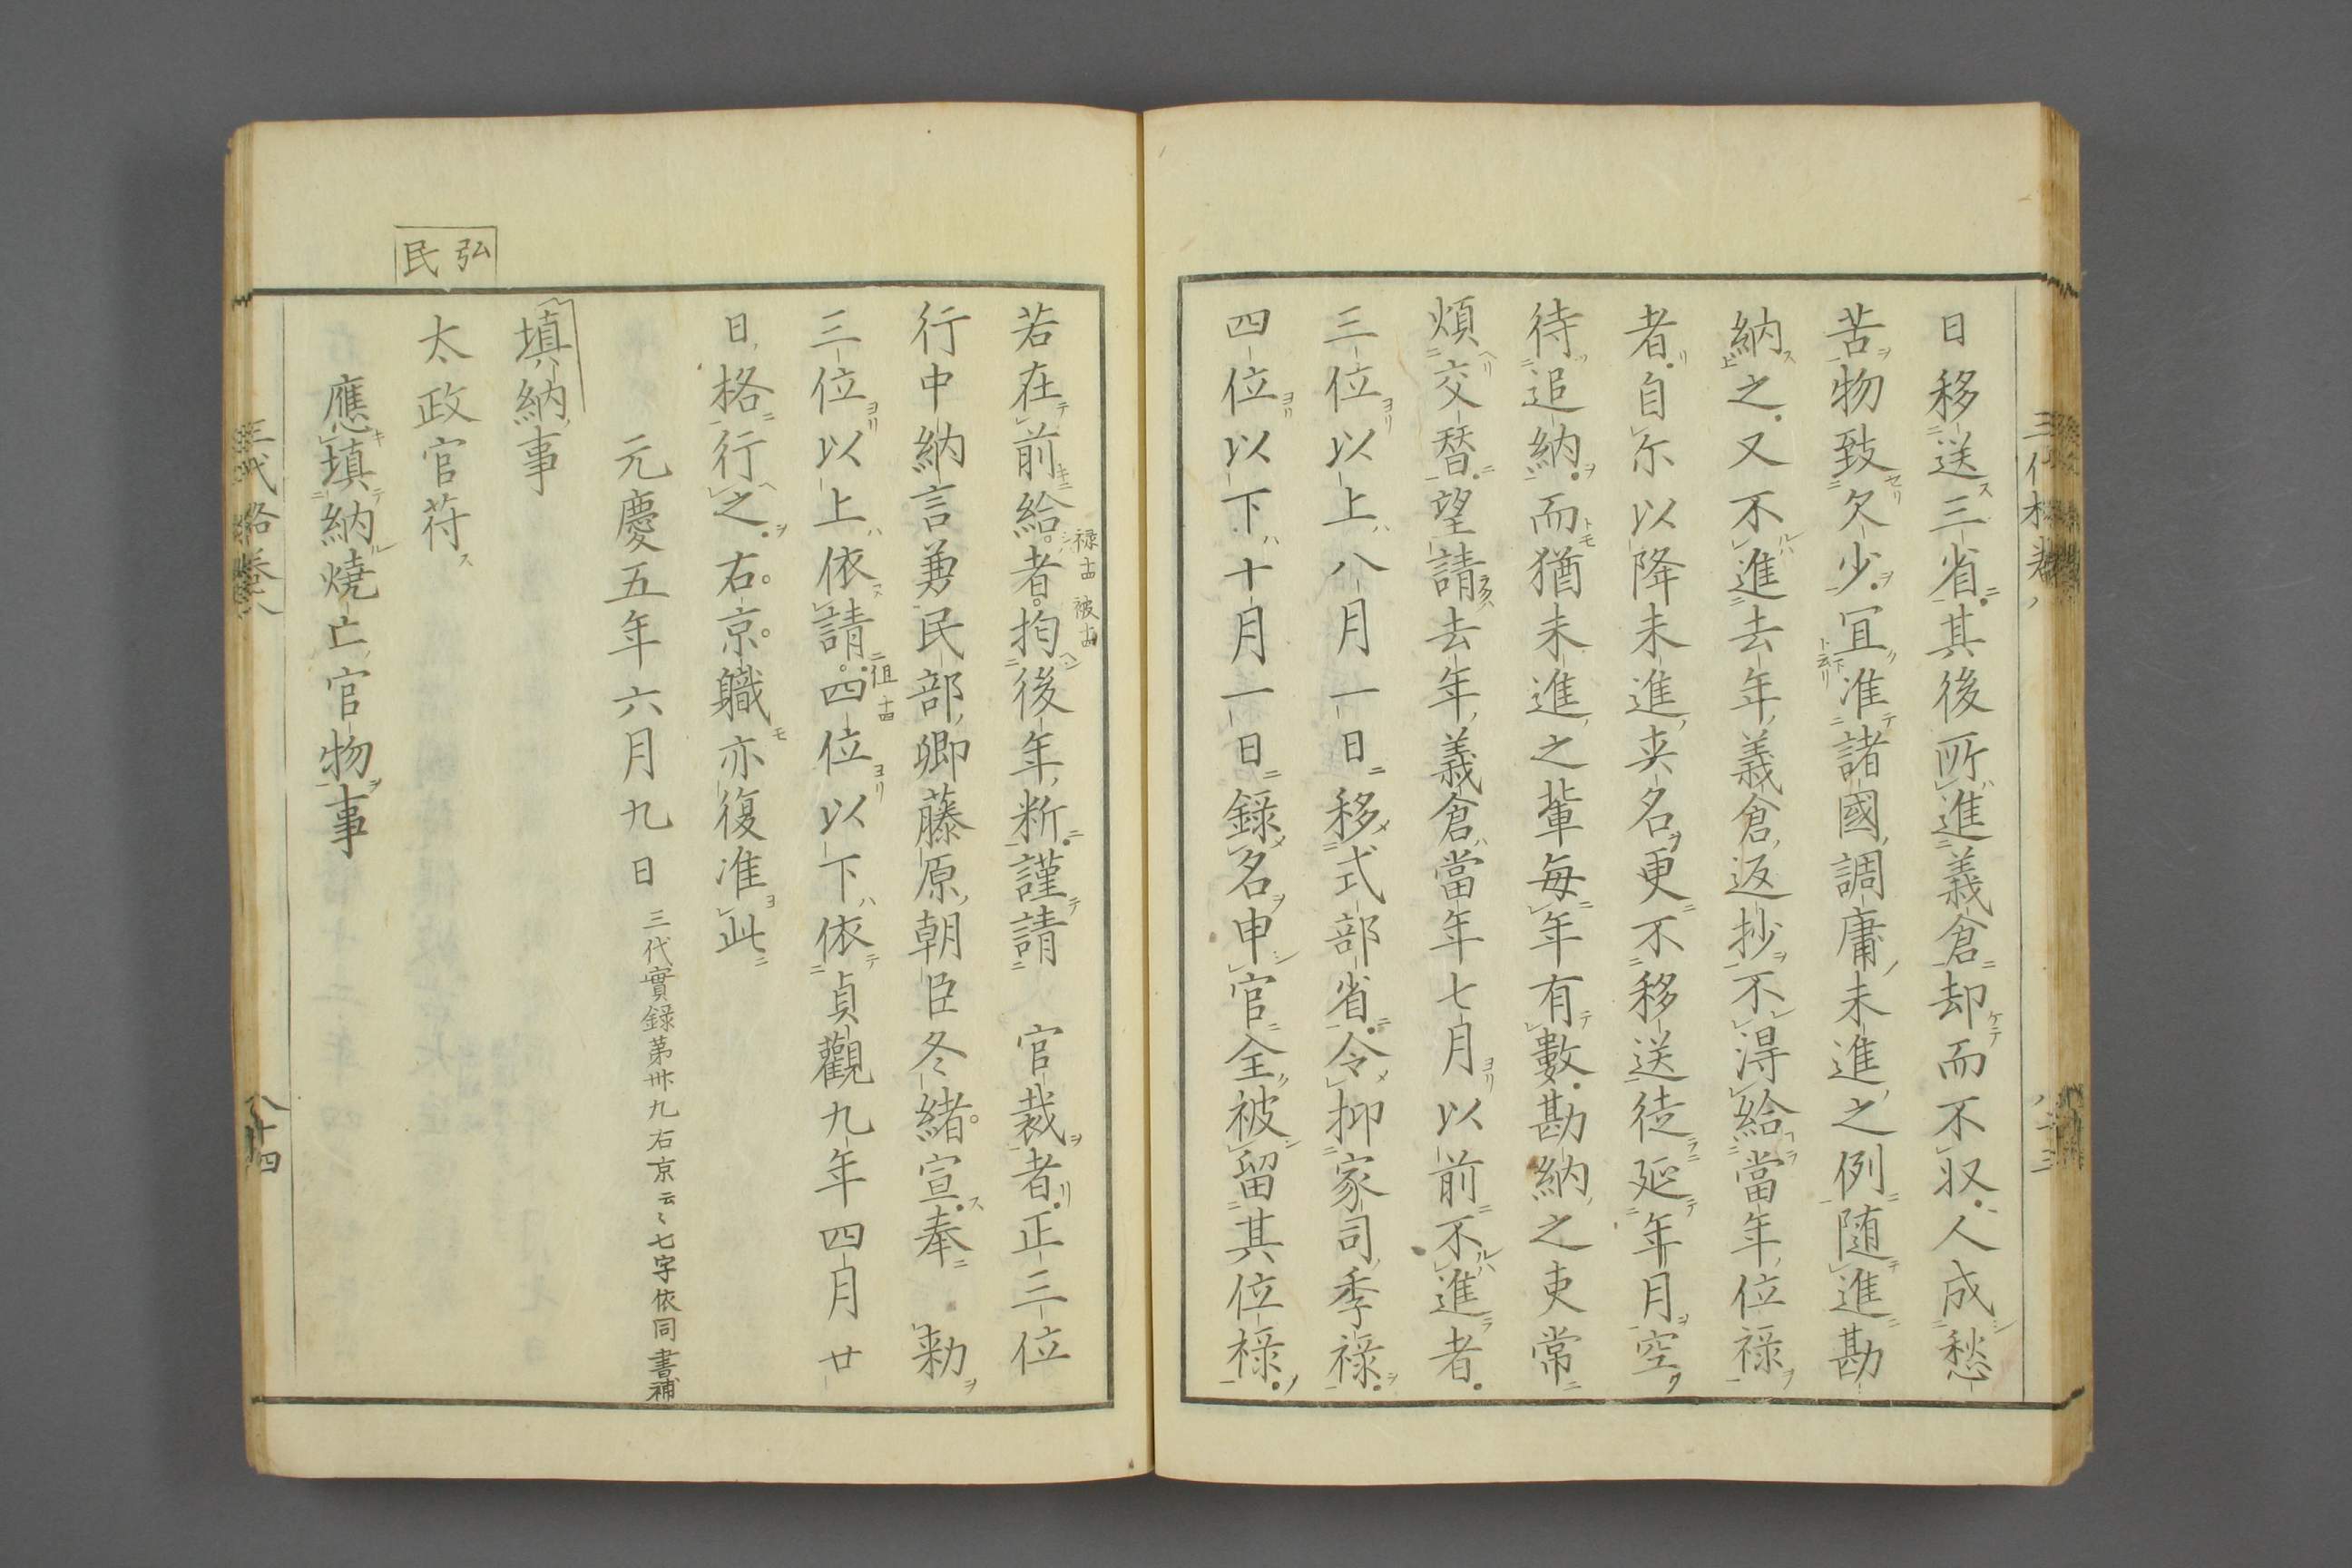 日移送三省其後所進義倉却而不収人成愁
苦物致欠少冝准諸國調庸未進之例随進勘
納之又不進去年義倉返抄不淂給當年位祿
者自尓以降未進夾名更不移送徒延年月空
待追納而猶未進之輩毎年有數勘納之吏常
煩交替望請去年義倉當年七月以前不進者
三位以上八月一日移式部省令抑家司季祿
四位以下十月一日錄名申官全被留其位祿
若在前給者拘後年断謹請　官裁者正三位
行中納言兼民部卿藤原朝臣冬緒宣奉　勅
三位以上依請四位以下依貞觀九年四月廿
日格行之右京職亦復准此
元慶五年六月九日 三代實録第卅九右京云〻七字依同書補
填納事
弘
民
太政官苻
應填納燒亡官物事
三代格卷八
八十四